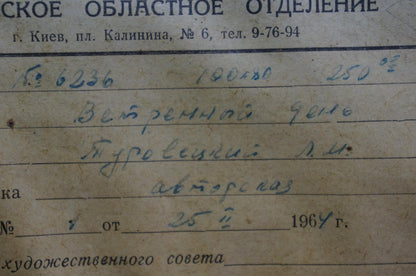 СКОЕ ОБЛАСТНОЕ ОТДЕЛЕНИЕ
г. Киев, пл. Калинина, № 6, тел. 9-76-94
№ 6236 100x80 250 00
Ветренный день
Туровецкий Л.М.
ка авторская
№ 1 от 25 II 1964 г.
художественного совета